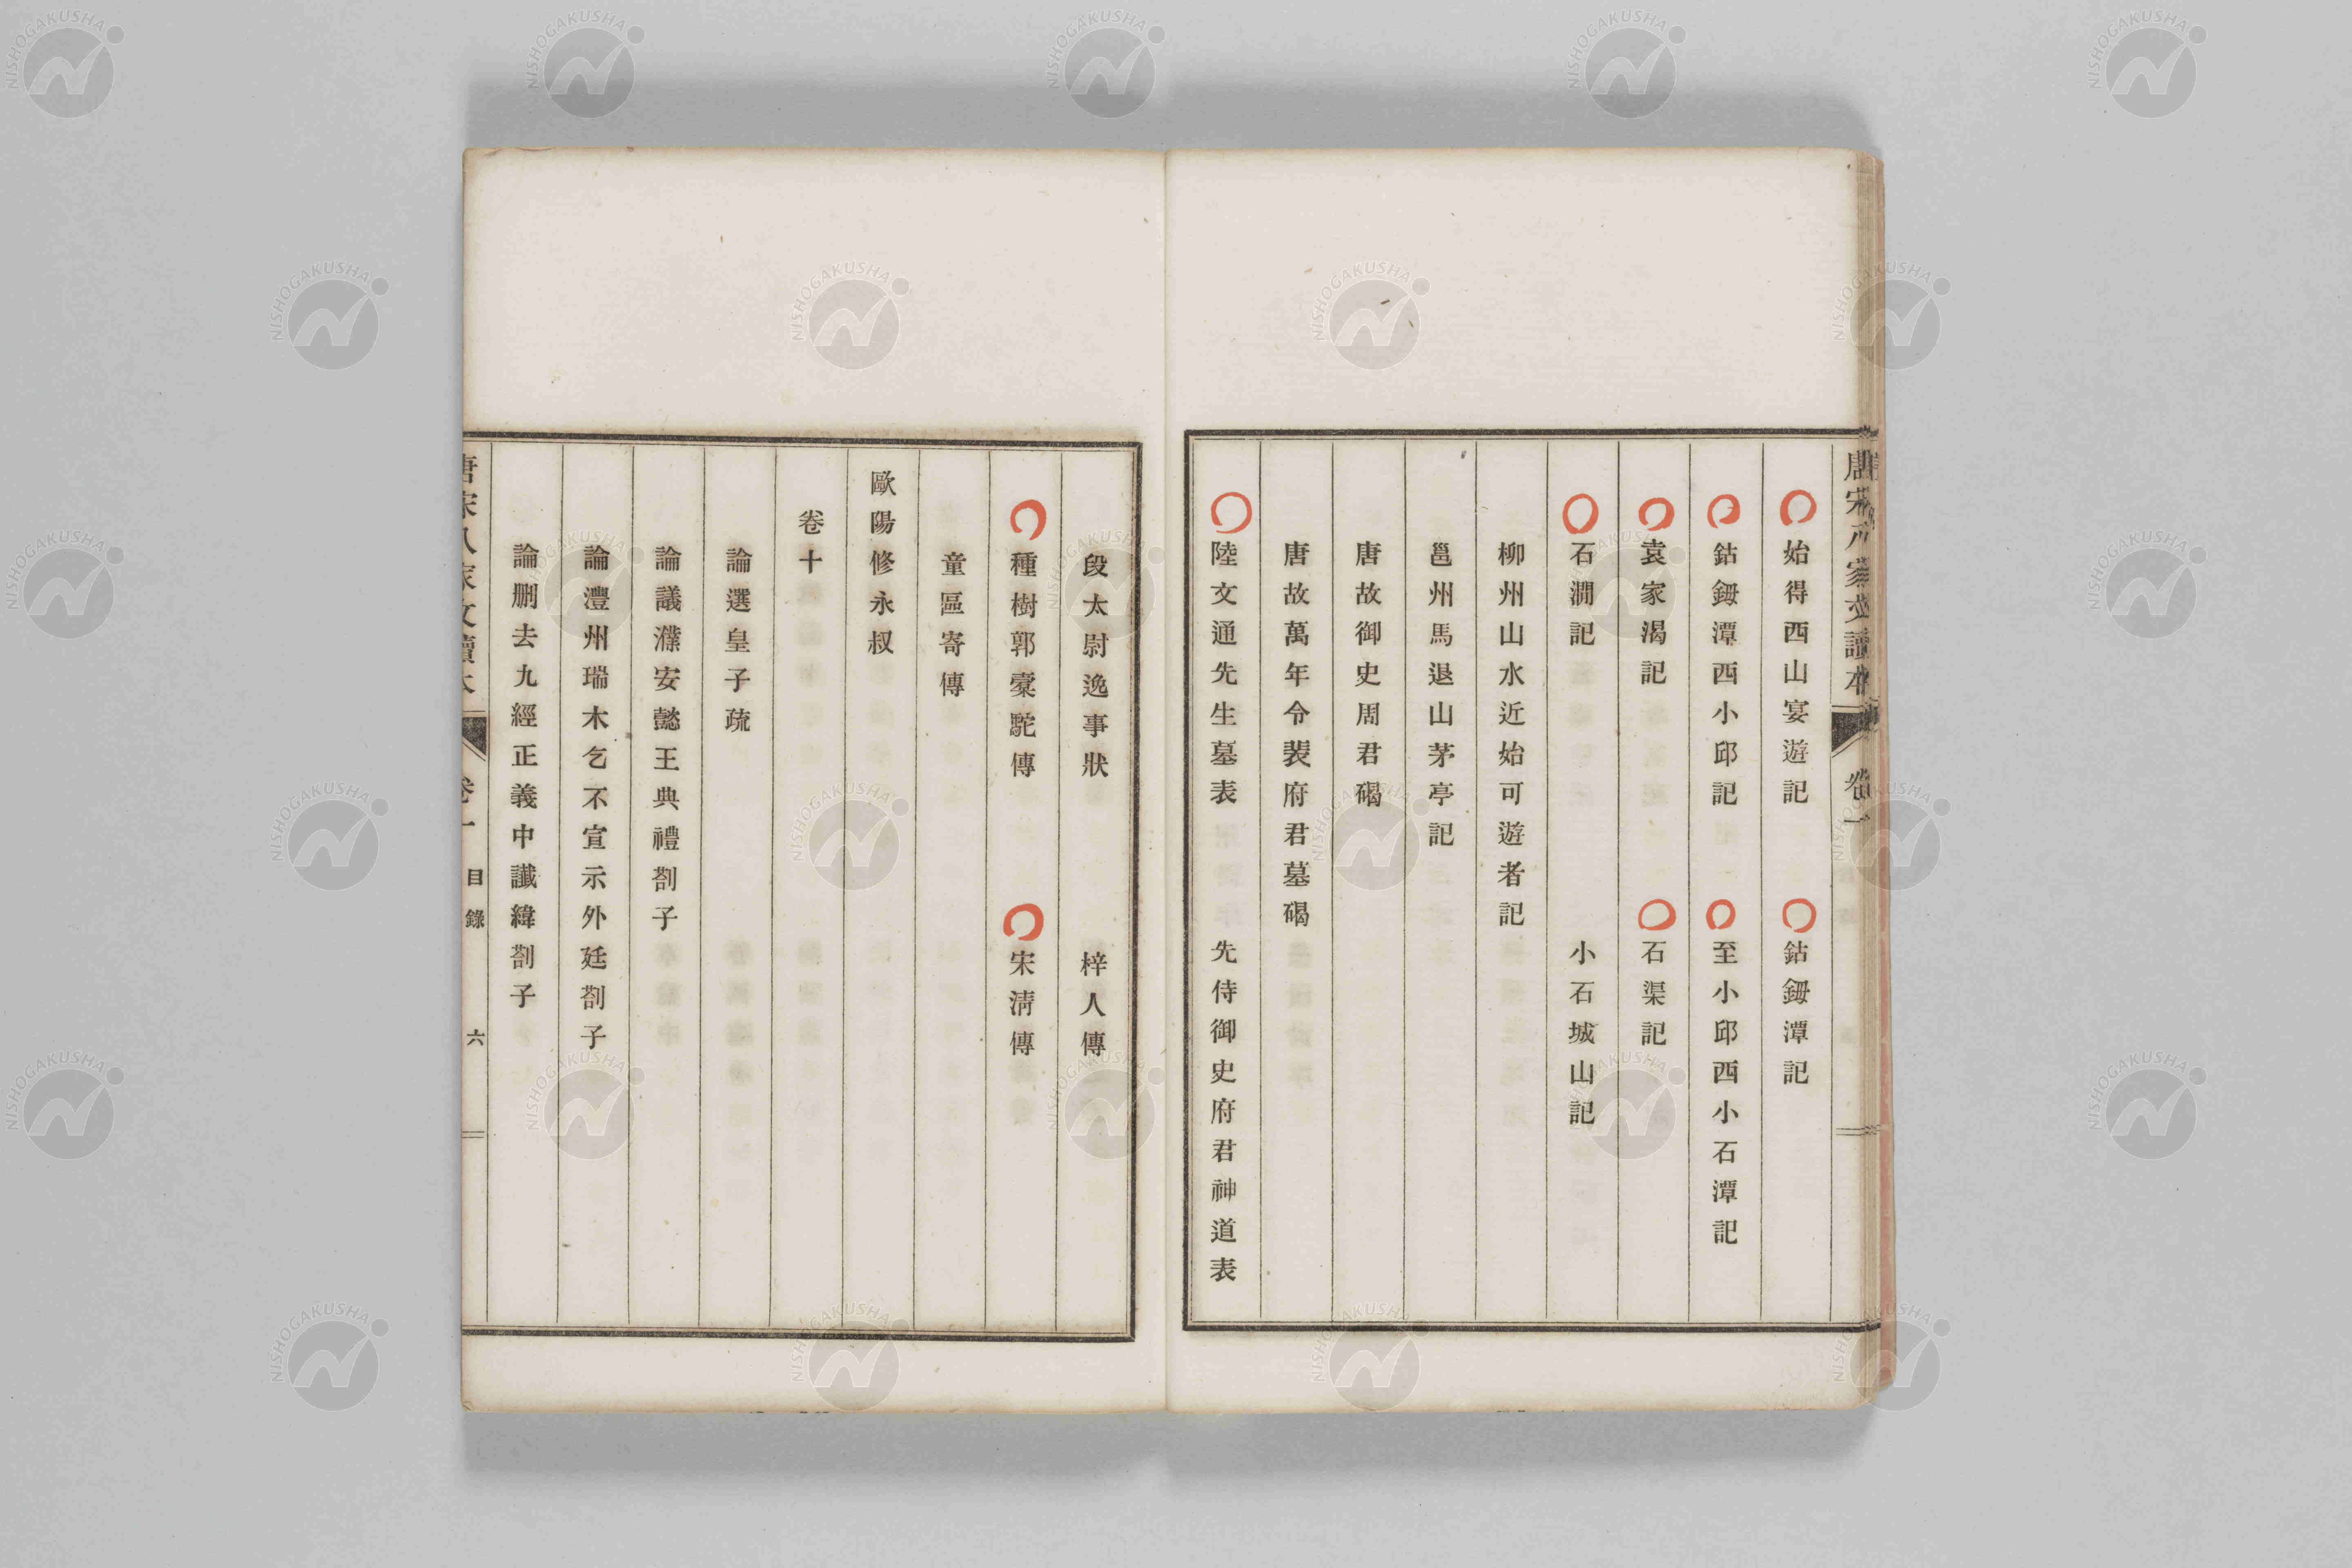 唐宋八家文讀本 卷一
始得西山宴遊記 鈷鉧潭記
鈷鉧潭西小邱記 至小邱西小石潭記
袁家渴記 石渠記
石澗記 小石城山記
柳州山水近始可遊者記
邕州馬退山茅亭記
唐故御史周君碣
唐故萬年令裴府君墓碣
陸文通先生墓表 先侍御史府君神道表
段太尉逸事狀 梓人傳
種樹郭橐駝傳 宋淸傳
童區寄傳
歐陽修永叔
卷十
論選皇子疏
論議濮安懿王典禮劄子
論澧州瑞木乞不宣示外廷劄子
論刪去九經正義中讖緯劄子
唐宋八家文讀本 卷一 目錄 六
NISHOGAKUSHA